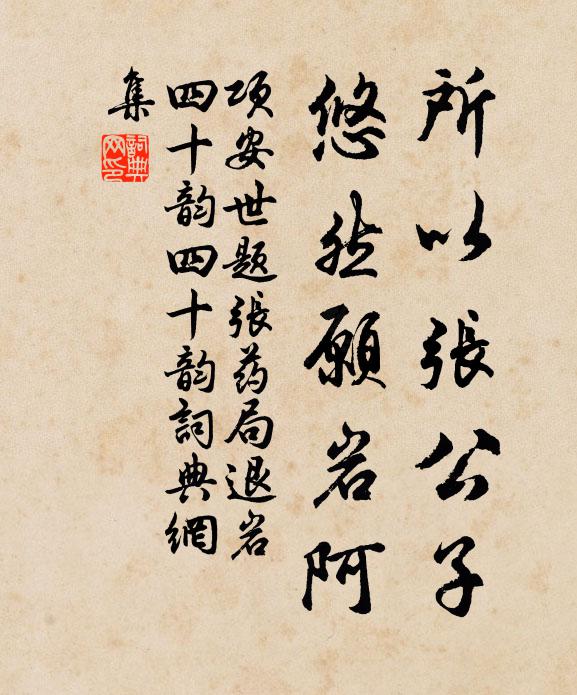 所以張公子
悠然願岩阿
项安世题張药局退岩
四十韵四十韵詞典網
集
詞典网印